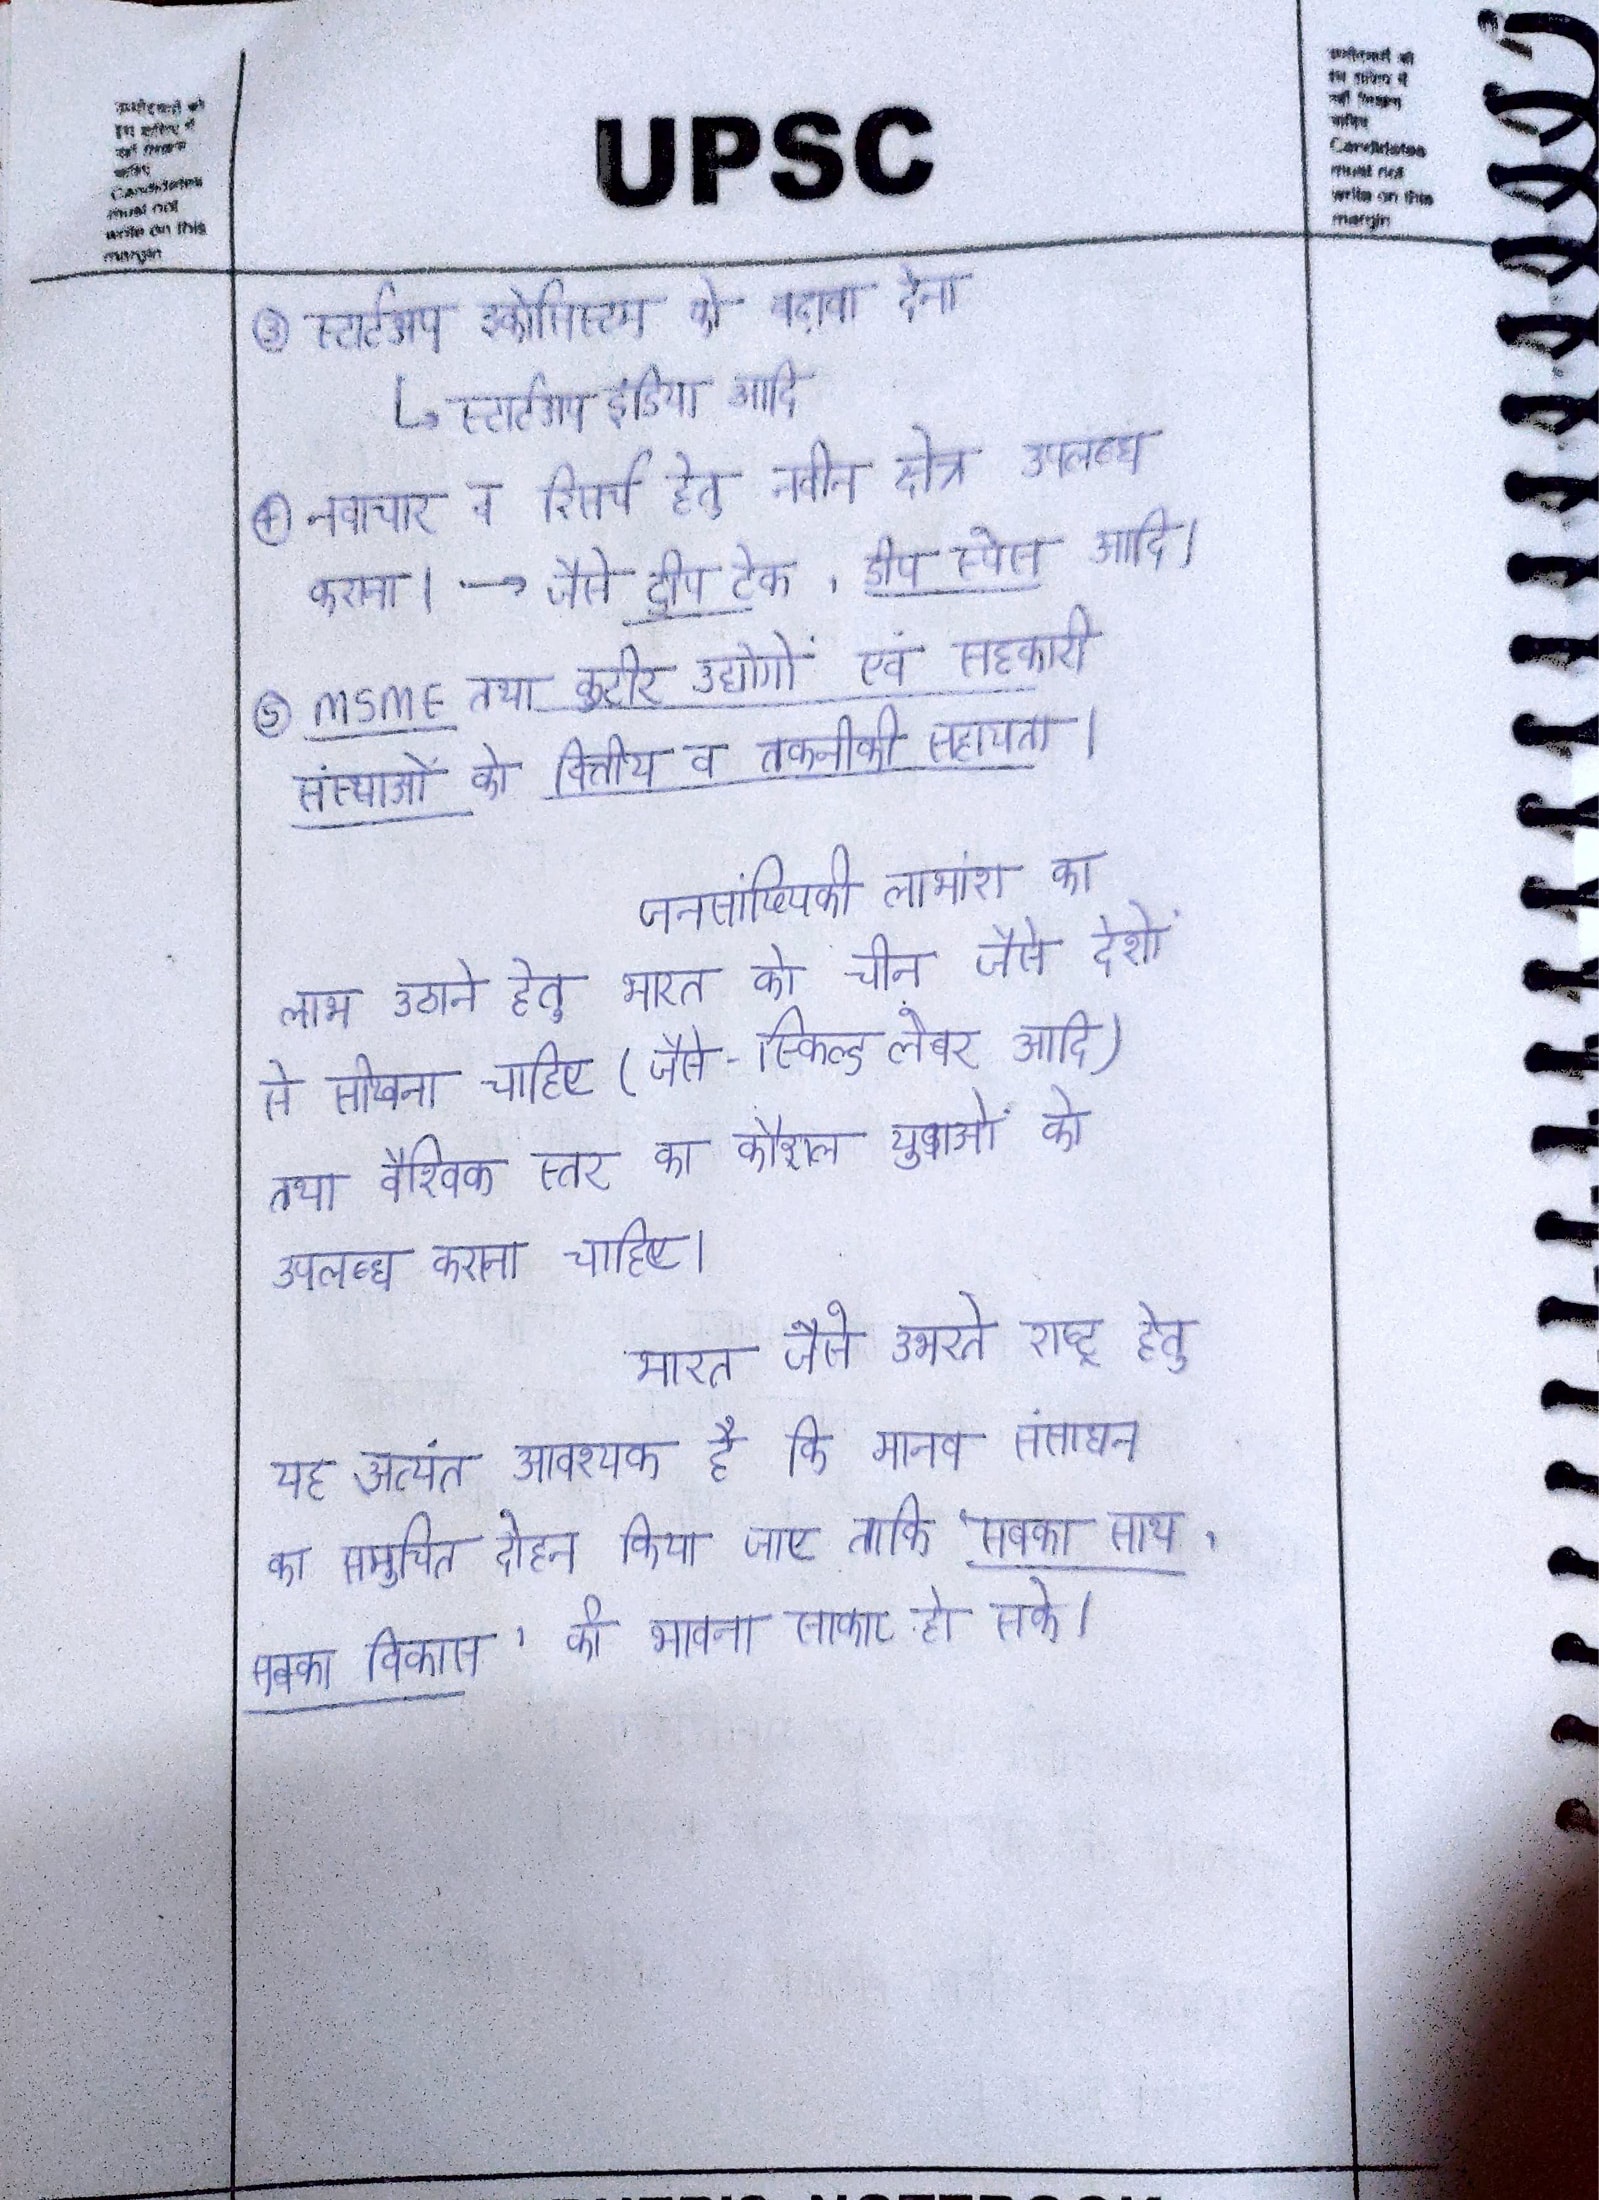 उम्मीदवारों को
इस हाशिए में
नहीं लिखना
चाहिए
Candidates
must not
write on this
margin
UPSC
उम्मीदवारों को
इस हाशिए में
नहीं लिखना
चाहिए
Candidates
must not
write on this
margin
③ स्टार्टअप इकोसिस्टम को बढ़ावा देना
↳ स्टार्टअप इंडिया आदि
④ नवाचार व रिसर्च हेतु नवीन क्षेत्र उपलब्ध
कराना। → जैसे डीप टेक, डीप स्पेस आदि।
⑤ MSME तथा कुटीर उद्योगों एवं सहकारी
संस्थाओं को वित्तीय व तकनीकी सहायता।
जनसांख्यिकी लाभांश का
लाभ उठाने हेतु भारत को चीन जैसे देशों
से सीखना चाहिए (जैसे - स्किल्ड लेबर आदि)
तथा वैश्विक स्तर का कौशल युवाओं को
उपलब्ध कराना चाहिए।
भारत जैसे उभरते राष्ट्र हेतु
यह अत्यंत आवश्यक है कि मानव संसाधन
का समुचित दोहन किया जाए ताकि 'सबका साथ,
सबका विकास' की भावना साकार हो सके।
NOTEBOOK